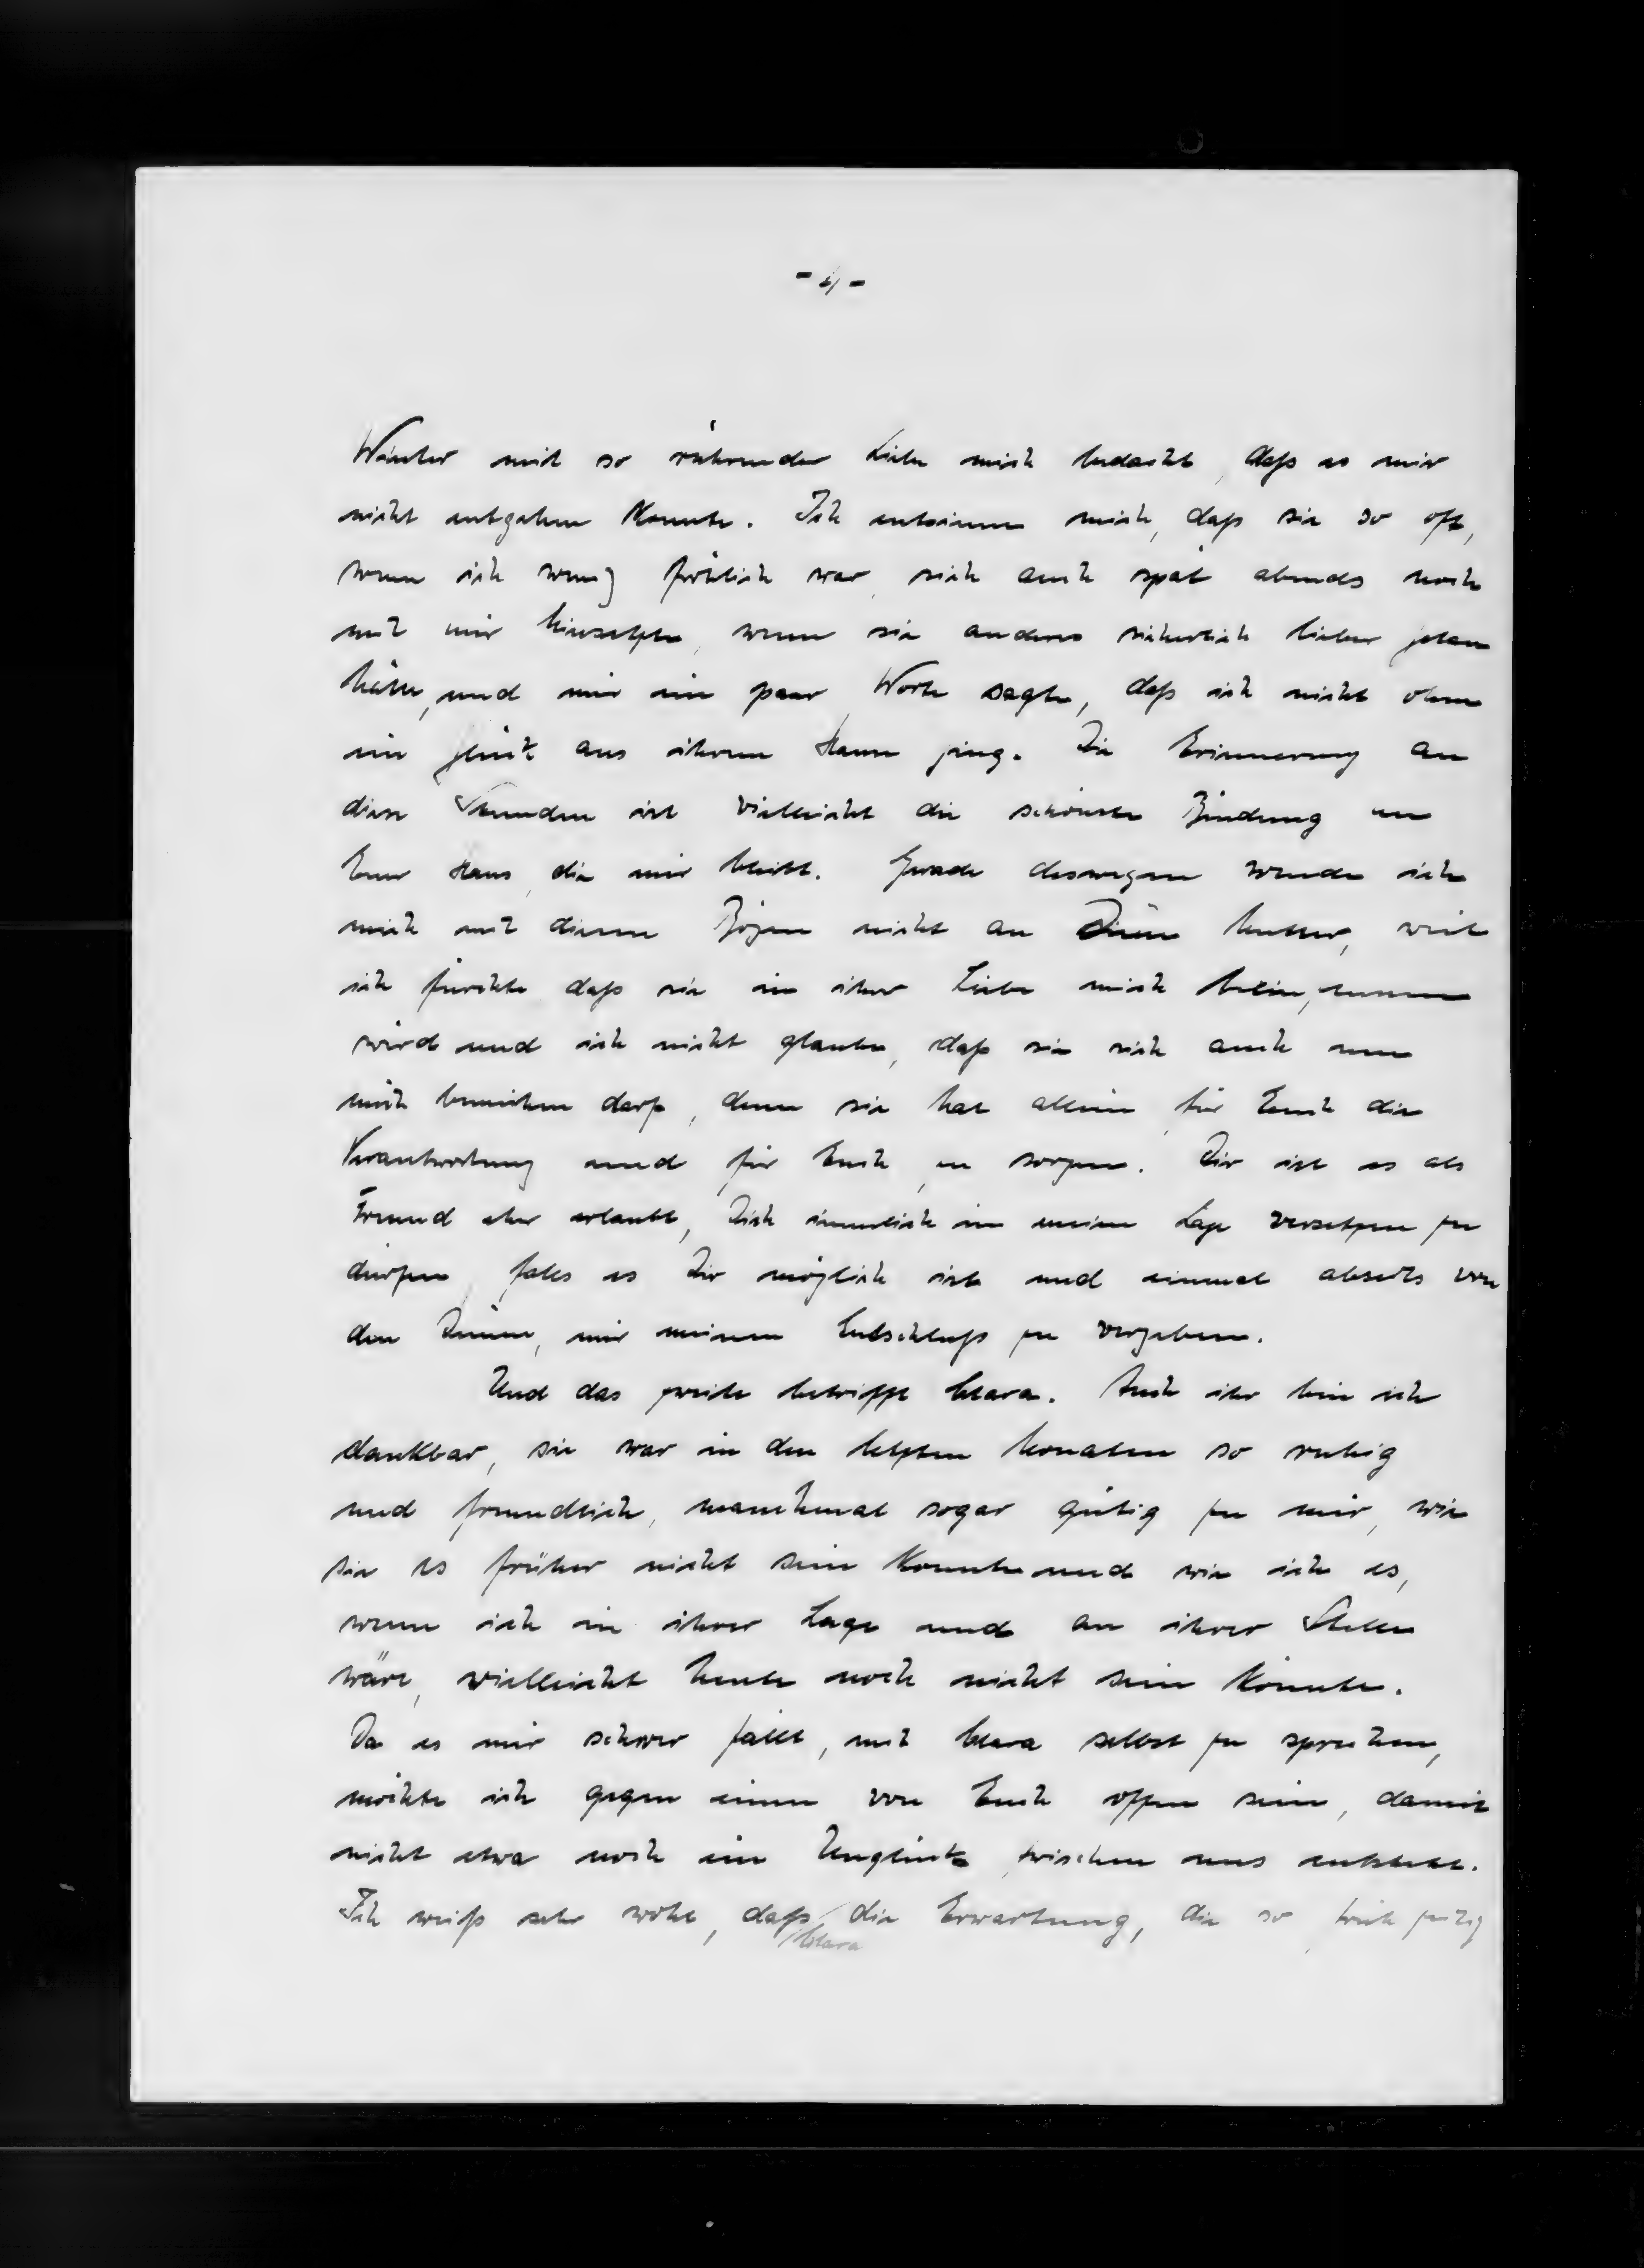 - 4 -
Winter mit so rührender Liebe mich bedacht, daß es mir
nicht entgehen konnte. Ich entsinne mich, daß sie so oft,
wenn ich wenig fröhlich war, sich auch spät abends noch
mit mir hinsetzte, wenn sie anderes sicherlich lieber getan
hätte, und mir ein paar Worte sagte, daß ich nicht ohne
ein Glück aus ihrem Haus ging. Die Erinnerung an
diese Stunden ist vielleicht die schönste Bindung an
Euer Haus, die mir bleibt. Gerade deswegen wende ich
mich mit diesem Bogen nicht an Deine Mutter, weil
ich fürchte daß sie in ihrer Liebe mich
wird und ich nicht glaube, daß sie sich auch um
mich bemühen darf, denn sie hat allein für Euch die
Verantwortung und für Euch zu sorgen. Dir ist es als
Freund eher erlaubt, Dich innerlich in meine Lage versetzen zu
dürfen falls es Dir möglich ist und einmal abseits von
den Deinen, mir meinen Entschluß zu vergeben.
Und das zweite betrifft Clara. Auch ihr bin ich
dankbar, sie war in den letzten Monaten so ruhig
und freundlich, manchmal sogar gütig zu mir, wie
sie es früher nicht sein konnte und wie ich es,
wenn ich in ihrer Lage und an ihrer Stelle
wäre, vielleicht heute noch nicht sein könnte.
Da es mir schwer fällt, mit Clara selbst zu sprechen,
möchte ich gegen einen von Euch offen sein, damit
nicht etwa noch ein Unglück zwischen uns entsteht.
Ich weiß sehr wohl, daß die Erwartung, die so
Clara